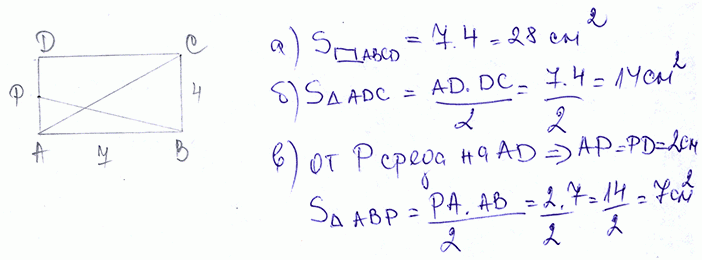 D C
P 4
A 7 B
а) S▭ABCD = 7.4 = 28 см²
б) S△ADC = AD.DC/2 = 7.4/2 = 14 см²
в) от P среда на AD ⇒ AP = PD = 2 см
S△ABP = PA.AB/2 = 2.7/2 = 14/2 = 7 см²